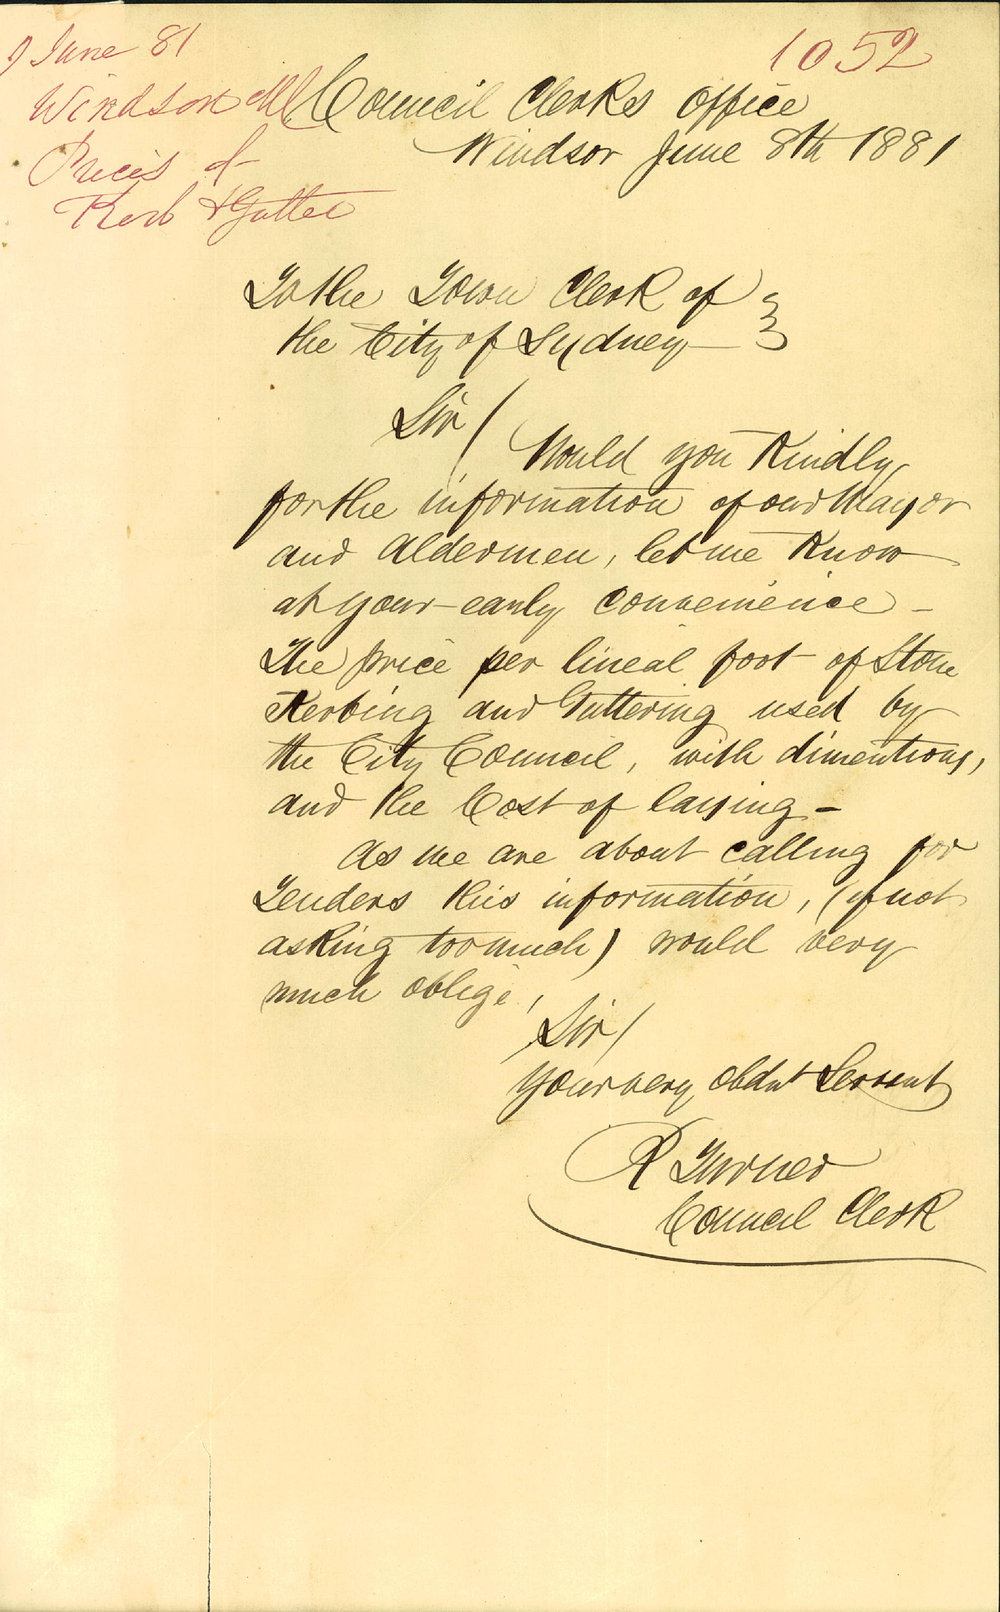 9 June 81
1052
Windsor M C
Prices of
Kerb & Gutter
Council Clerks Office
Windsor June 8th 1881
To the Town Clerk of
the City of Sydney
Sir/
Would you Kindly
for the information of our Mayor
and Aldermen, let me Know
at your early convenience -
The price per lineal foot of Stone
Kerbing and Guttering used by
the City Council, with dimentions,
and the Cost of laying -
As we are about calling for
Tenders this information, (if not
asking too much) would very
much oblige,
Sir/
Your very obdnt Servant
R Turner
Council Clerk